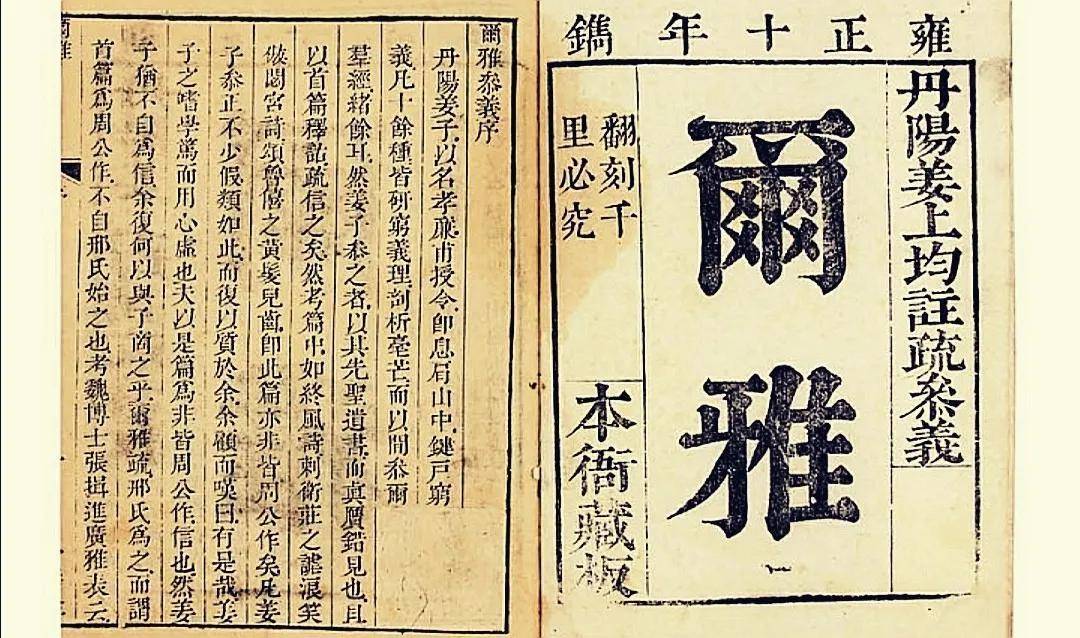 雍正十年鐫
丹陽姜上均註疏叅義
爾雅
翻刻千
里必究
本衙藏板
爾雅叅義序
丹陽姜子以名孝廉甫授令卽息肩山中鍵戸窮
義凡十餘種皆硏窮義理剖析毫芒而以間叅爾
羣經緒餘耳然姜子叅之者以其先聖遺書而眞贋錯見也且
以首篇釋詁疏信之矣然考篇中如終風詩刺衛莊之謔浪笑
傲閟宮詩頌魯僖之黃髮兒齒卽此篇亦非皆周公作矣凡姜
子叅正不少假類如此而復以質於余余顧而嘆曰有是哉姜
子之嗜學篤而用心虛也夫以是篇爲非皆周公作信也然姜
子猶不自爲信余復何以與子商之乎爾雅疏邢氏爲之而謂
首篇爲周公作不自邢氏始之也考魏博士張揖進廣雅表云
爾雅